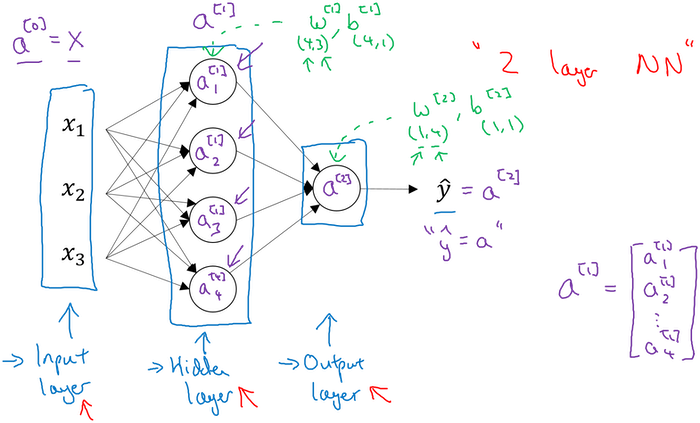 a^[0] = X
a^[1]
w^[1], b^[1]
(4,3) (4,1)
"2 layer NN"
x₁
x₂
x₃
a₁^[1]
a₂^[1]
a₃^[1]
a₄^[4]
w^[2], b^[2]
(1,4) (1,1)
a^[2]
ŷ = a^[2]
"ŷ = a"
a^[1] = [a₁^[1]
a₂^[1]
⋮
a₄^[1]]
→ Input layer
→ Hidden layer
→ Output layer